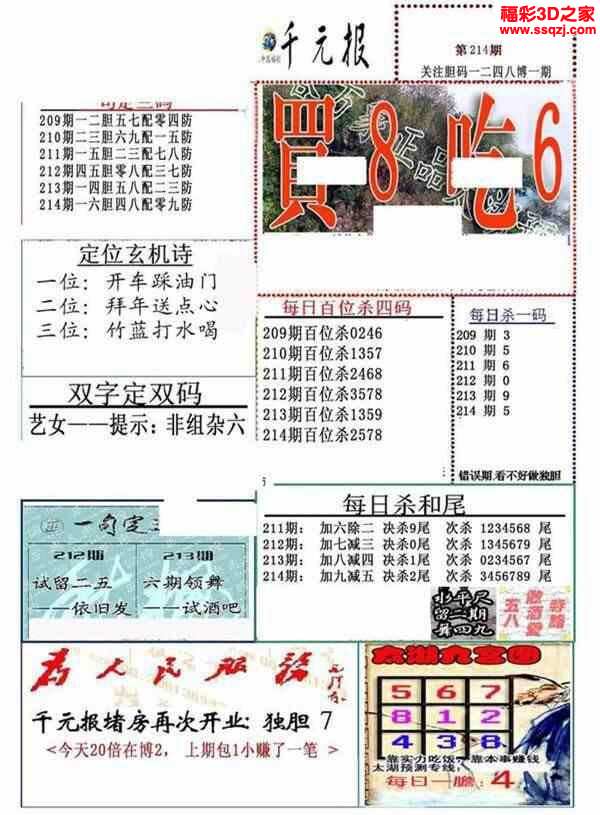 福彩3D之家
www.ssqzj.com
千元报
第214期
关注胆码一二四八博一期
209期一二胆五七配零四防
210期二三胆六九配一五防
211期一五胆二三配七八防
212期四五胆零八配三七防
213期一四胆五八配二三防
214期一六胆四八配零九防
買8吃6
定位玄机诗
一位：开车踩油门
二位：拜年送点心
三位：竹蓝打水喝
每日百位杀四码
209期百位杀0246
210期百位杀1357
211期百位杀2468
212期百位杀3578
213期百位杀1359
214期百位杀2578
每日杀一码
209 期 3
210 期 5
211 期 6
212 期 0
213 期 9
214 期 5
错误期,看不好做独胆
双字定双码
艺女——提示：非组杂六
一句定三
212期
试留二五
——依旧发
213期
六期领舞
——试酒吧
每日杀和尾
211期： 加六除二 决杀9尾 次杀 1234568 尾
212期： 加七减三 决杀0尾 次杀 1345679 尾
213期： 加八减四 决杀1尾 次杀 0234567 尾
214期： 加九减五 决杀2尾 次杀 3456789 尾
留二期
舞四九
五八
为人民服务
千元报堵房再次开业:独胆 7
<今天20倍在博2， 上期包1小赚了一笔 >
太湖九宫图
5 6 7
8 1 2
4 3 8
靠实力吃饭，靠本事赚钱
太湖预测专线：
每日一胆：4